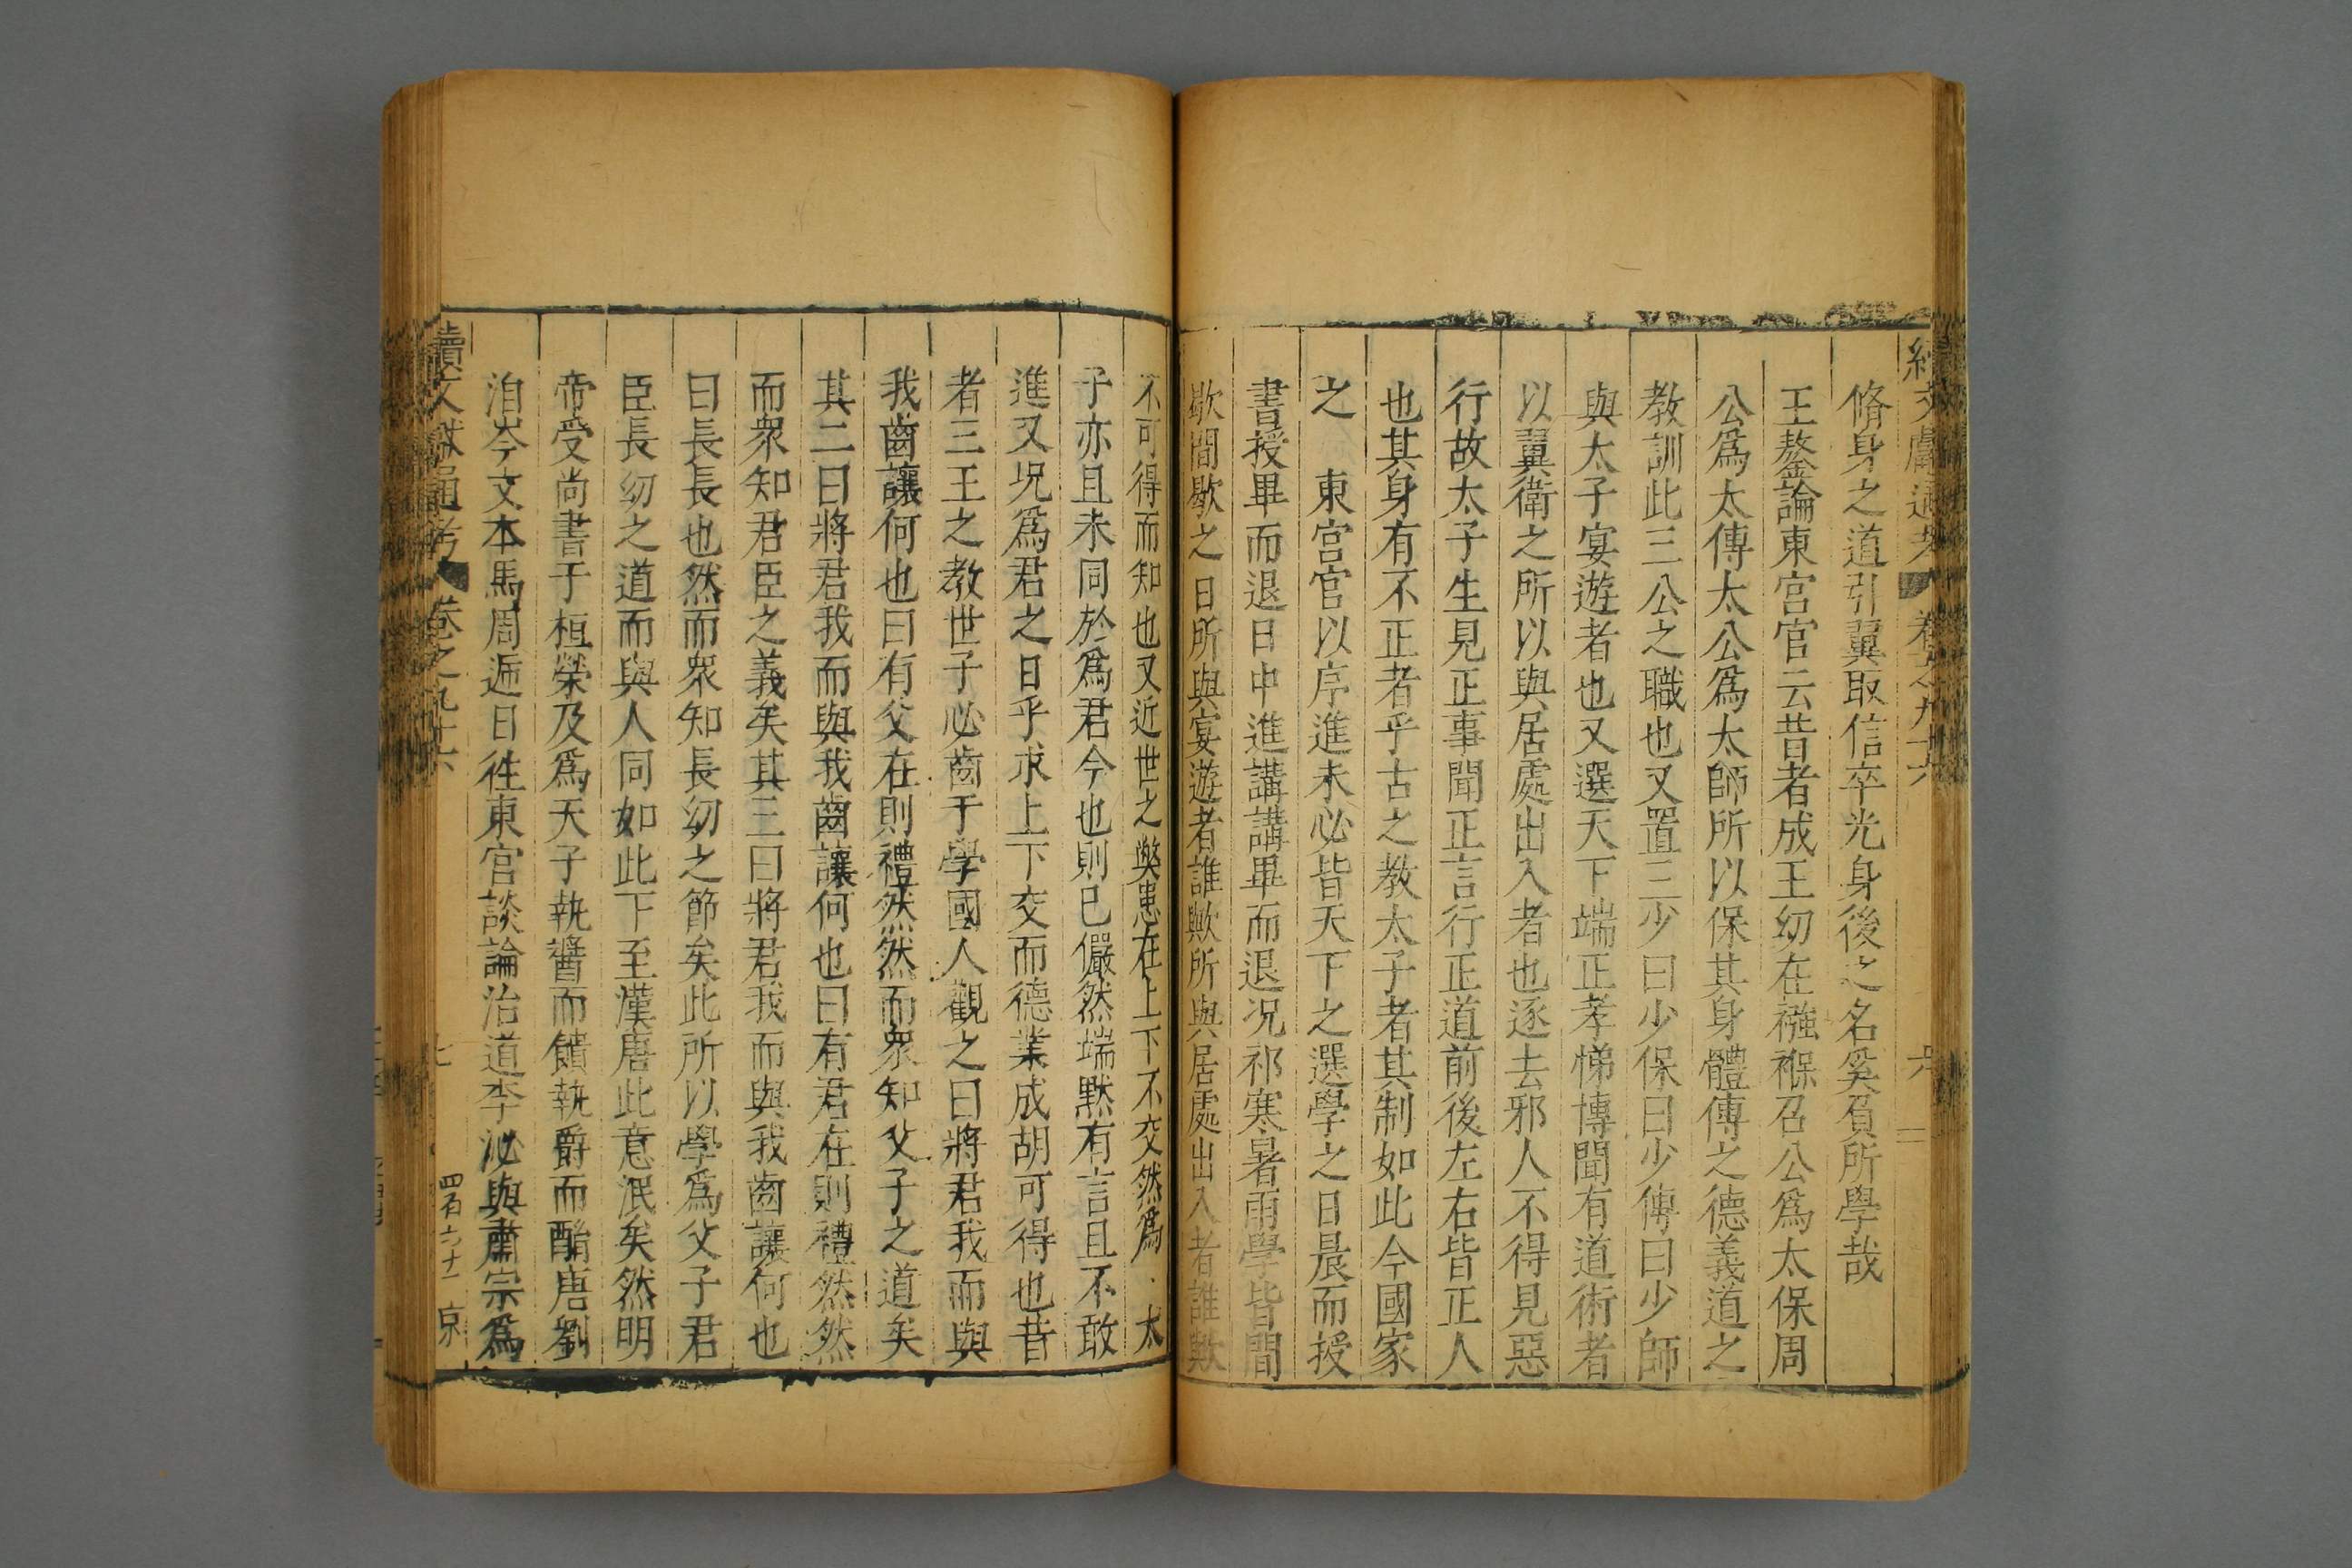 續文獻通考 卷之九十六 六
脩身之道引翼取信卒光身後之名奚負所學哉
王鏊論東宮官云昔者成王幼在襁褓召公爲太保周
公爲太傅太公爲太師所以保其身體傅之德義道之
教訓此三公之職也又置三少曰少保曰少傅曰少師
與太子宴遊者也又選天下端正孝悌博聞有道術者
以翼衛之所以與居處出入者也逐去邪人不得見惡
行故太子生見正事聞正言行正道前後左右皆正人
也其身有不正者乎古之教太子者其制如此今國家
之 東宮官以序進未必皆天下之選學之日晨而授
書授畢而退日中進講講畢而退况祁寒暑雨學皆間
歇間歇之日所與宴遊者誰歟所與居處出入者誰歟
不可得而知也又近世之獘患在上下不交然爲 太
子亦且未同於爲君今也則已儼然端默有言且不敢
進又况爲君之日乎求上下交而德業成胡可得也昔
者三王之教世子必齒于學國人觀之曰將君我而與
我齒讓何也曰有父在則禮然然而衆知父子之道矣
其二曰將君我而與我齒讓何也曰有君在則禮然然
而衆知君臣之義矣其三曰將君我而與我齒讓何也
曰長長也然而衆知長幼之節矣此所以學爲父子君
臣長幼之道而與人同如此下至漢唐此意泯矣然明
帝受尚書于桓榮及爲天子執醬而饋執爵而酳唐劉
洎岑文本馬周遞日徃東宮談論治道李泌與肅宗爲
續文獻通考 卷之九十六 七 四百六十一 京